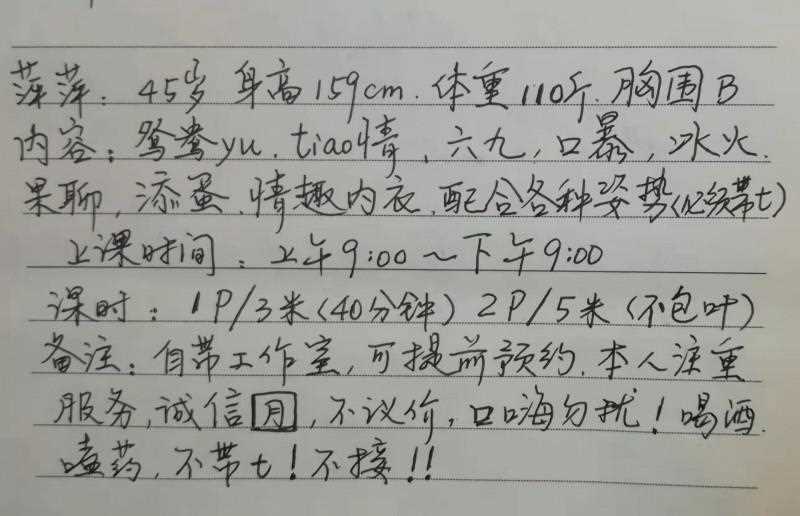 萍萍：45岁 身高159cm. 体重110斤. 胸围B
内容：鸳鸯yu. tiao情, 六九, 口暴, 冰火.
果聊, 添蛋. 情趣内衣. 配合各种姿势(必须带t)
上课时间：上午9:00～下午9:00
课时：1P/3米(40分钟) 2P/5米(不包叶)
备注：自带工作室, 可提前预约. 本人注重
服务, 诚信月, 不议价, 口嗨勿扰! 喝酒.
嗑药, 不带t! 不接!!